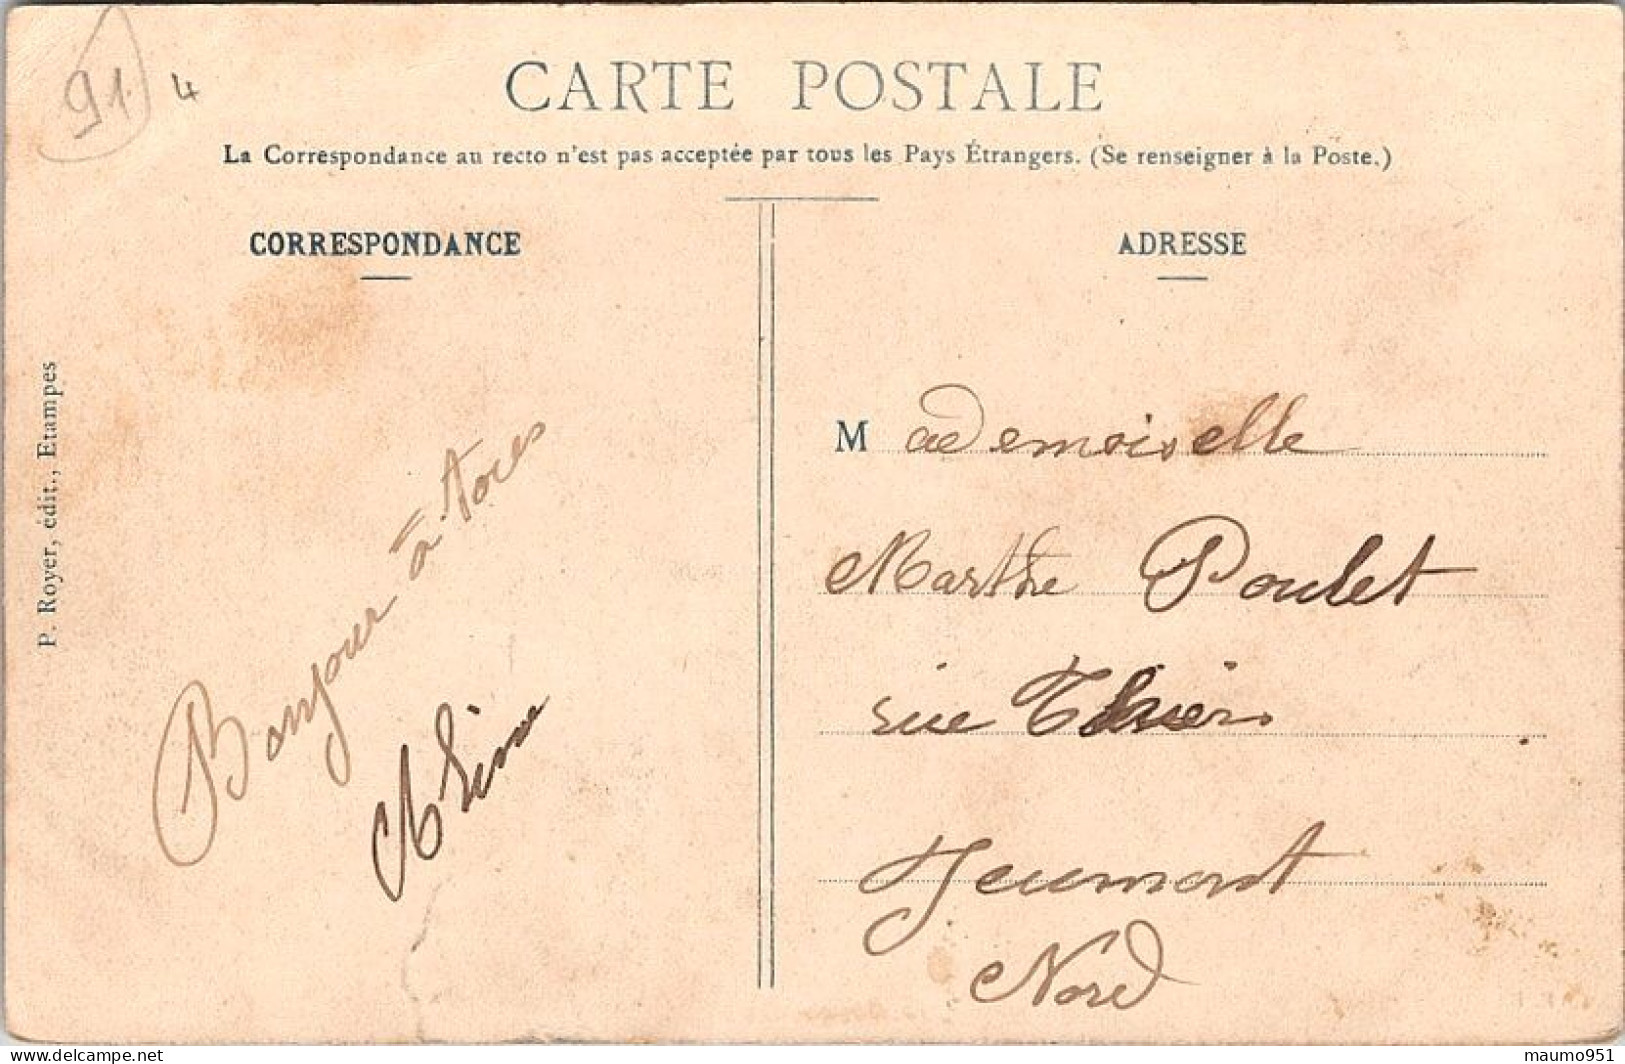 91.
4
CARTE POSTALE
La Correspondance au recto n'est pas acceptée par tous les Pays Étrangers. (Se renseigner à la Poste.)
CORRESPONDANCE
P. Royer, édit., Etampes
Bonjour à toues
ADRESSE
Mademoiselle
Marthe Poulet
rue Thiers
Jeumont
Nord
Delcampe.net
maumo951